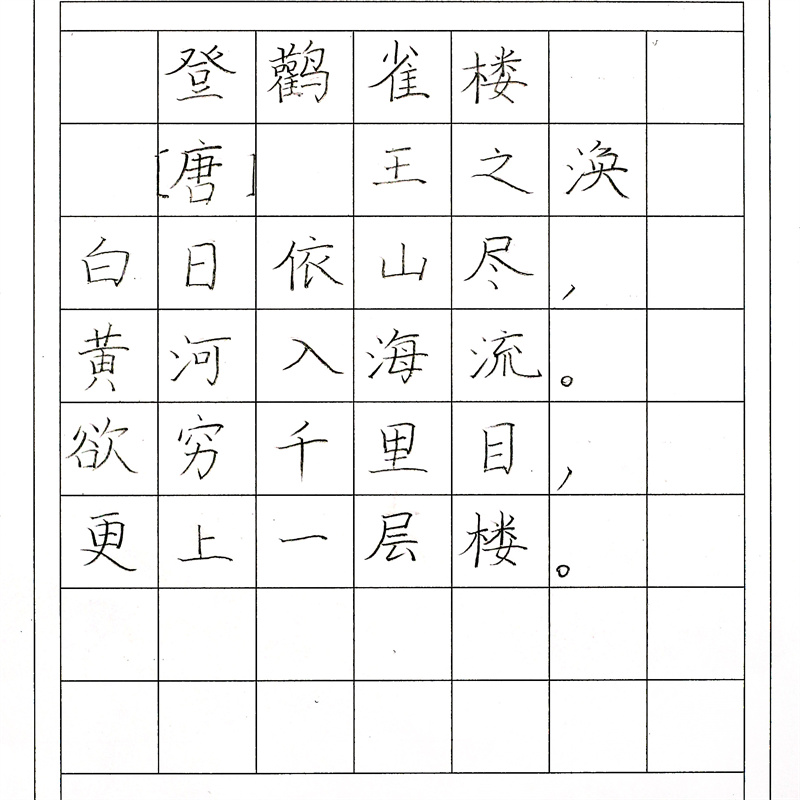 登鹳雀楼
[唐] 王之涣
白日依山尽，
黄河入海流。
欲穷千里目，
更上一层楼。